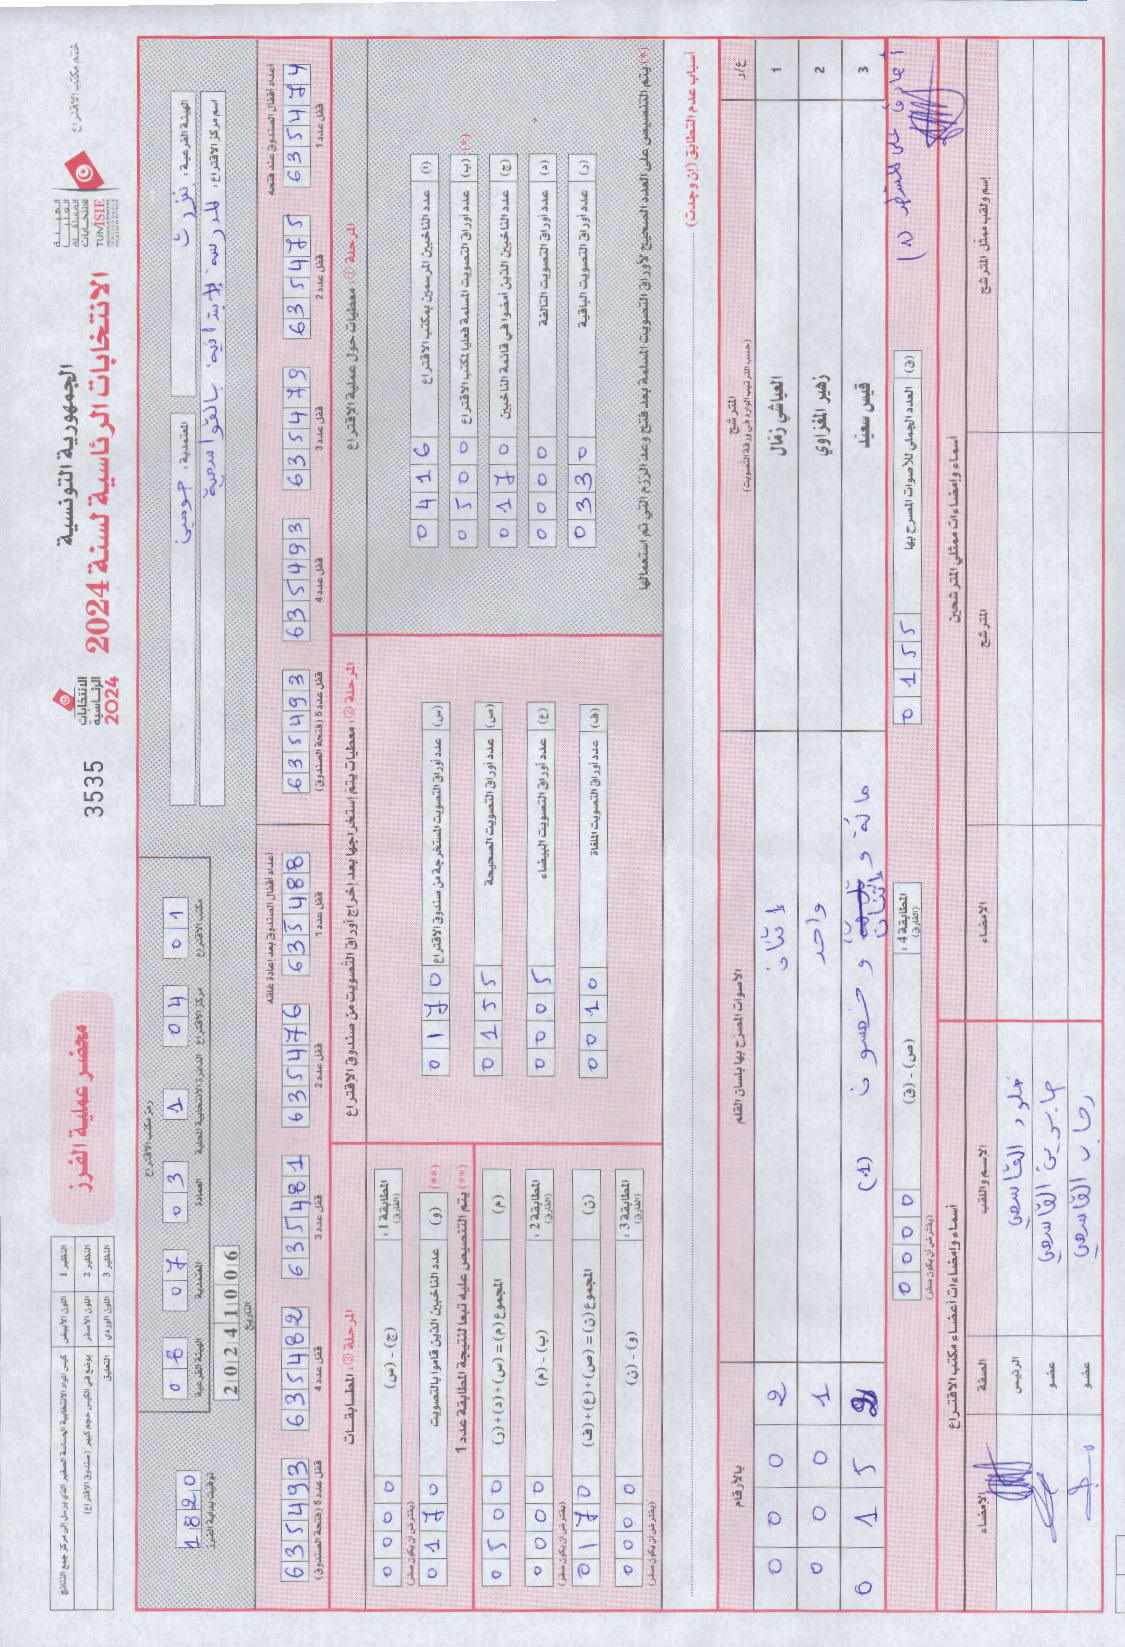 ختم مكتب الاقتراع
الجمهورية التونسية
الانتخابات الرئاسية لسنة 2024
الهيئة
العليا
المستقلة
للانتخابات
TUNISIE
الانتخابات
الرئاسية
2024
3535
محضر عملية الفرز
النظير 1 اللون الأبيض
النظير 2 اللون الأصفر يوضع في الكيس حجم كبير (صندوق الاقتراع)
النظير 3 اللون الوردي التعليق
الهيئة الفرعية: بنزرت
المعتمدية: جومين
اسم مركز الاقتراع: المدرسة الابتدائية بالقواسمية
رمز مكتب الاقتراع
08 07 03 1 04 01
الهيئة الفرعية المعتمدية العمادة الدائرة الانتخابية المحلية مركز الاقتراع مكتب الاقتراع
20241006
التاريخ
1820
توقيت بداية الفرز
أعداد أقفال الصندوق عند فتحه
635474 635475 635479 635493 635493
قفل عدد 1 قفل عدد 2 قفل عدد 3 قفل عدد 4 قفل عدد 5 (فتحة الصندوق)
أعداد أقفال الصندوق بعد إعادة غلقه
635488 635476 635481 635482 635493
قفل عدد 1 قفل عدد 2 قفل عدد 3 قفل عدد 4 قفل عدد 5 (فتحة الصندوق)
المرحلة ①: معطيات حول عملية الاقتراع
(أ) عدد الناخبين المرسمين بمكتب الاقتراع 0416
(*) (ب) عدد أوراق التصويت المسلمة فعليا لمكتب الاقتراع 0500
(ج) عدد الناخبين الذين أمضوا في قائمة الناخبين 0170
(د) عدد أوراق التصويت التالفة 0000
(ر) عدد أوراق التصويت الباقية 0330
(*) يتم التنصيص على العدد الصحيح لأوراق التصويت المسلمة بعد فتح وعد الرزم التي تم استعمالها
المرحلة ②: معطيات يتم استخراجها بعد إخراج أوراق التصويت من صندوق الاقتراع
(س) عدد أوراق التصويت المستخرجة من صندوق الاقتراع 0170
(ص) عدد أوراق التصويت الصحيحة 0155
(ع) عدد أوراق التصويت البيضاء 0005
(ف) عدد أوراق التصويت الملغاة 0010
المرحلة ③: المطابقات
المطابقة 1: (الفارق) (ج) - (س) 000
(يفترض أن يكون صفر)
(**) (و) عدد الناخبين الذين قاموا بالتصويت 0170
(**) يتم التنصيص عليه تبعا لنتيجة المطابقة عدد 1
(م) المجموع (م) = (س) + (د) + (ر) 0500
المطابقة 2: (الفارق) (ب) - (م) 0000
(يفترض أن يكون صفر)
(ن) المجموع (ن) = (ص) + (ع) + (ف) 0170
المطابقة 3: (الفارق) (و) - (ن) 000
(يفترض أن يكون صفر)
أسباب عدم التطابق (إن وجدت)
ع/ر المترشح الأصوات المصرح بها بلسان القلم بالأرقام
(حسب الترتيب الوارد في ورقة التصويت)
1 العياشي زمّال إثنان 0002
2 زهير المغزاوي واحد 0001
3 قيس سعيّد مائة و إثنان و خمسون (1) 0152
(ق) العدد الجملي للأصوات المصرح بها 0155
المطابقة 4: (الفارق) (ص) - (ق) 0000
(يفترض أن يكون صفر)
أسماء وإمضاءات ممثلي المترشحين
أسماء وإمضاءات أعضاء مكتب الاقتراع
إسم ولقب ممثل المترشح المترشح الامضاء
الاسم واللقب الصفة الامضاء
خلود القاسمي الرئيس
القاسمي عضو
رحاب القاسمي عضو